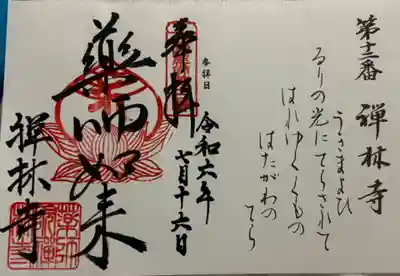 第十二番 禅林寺
うきまよひ
るりの光にてらされて
はれゆくくもの
はたがわの
てら
参拝日
令和六年
七月十六日
奉拝
藥師如来
禅林寺